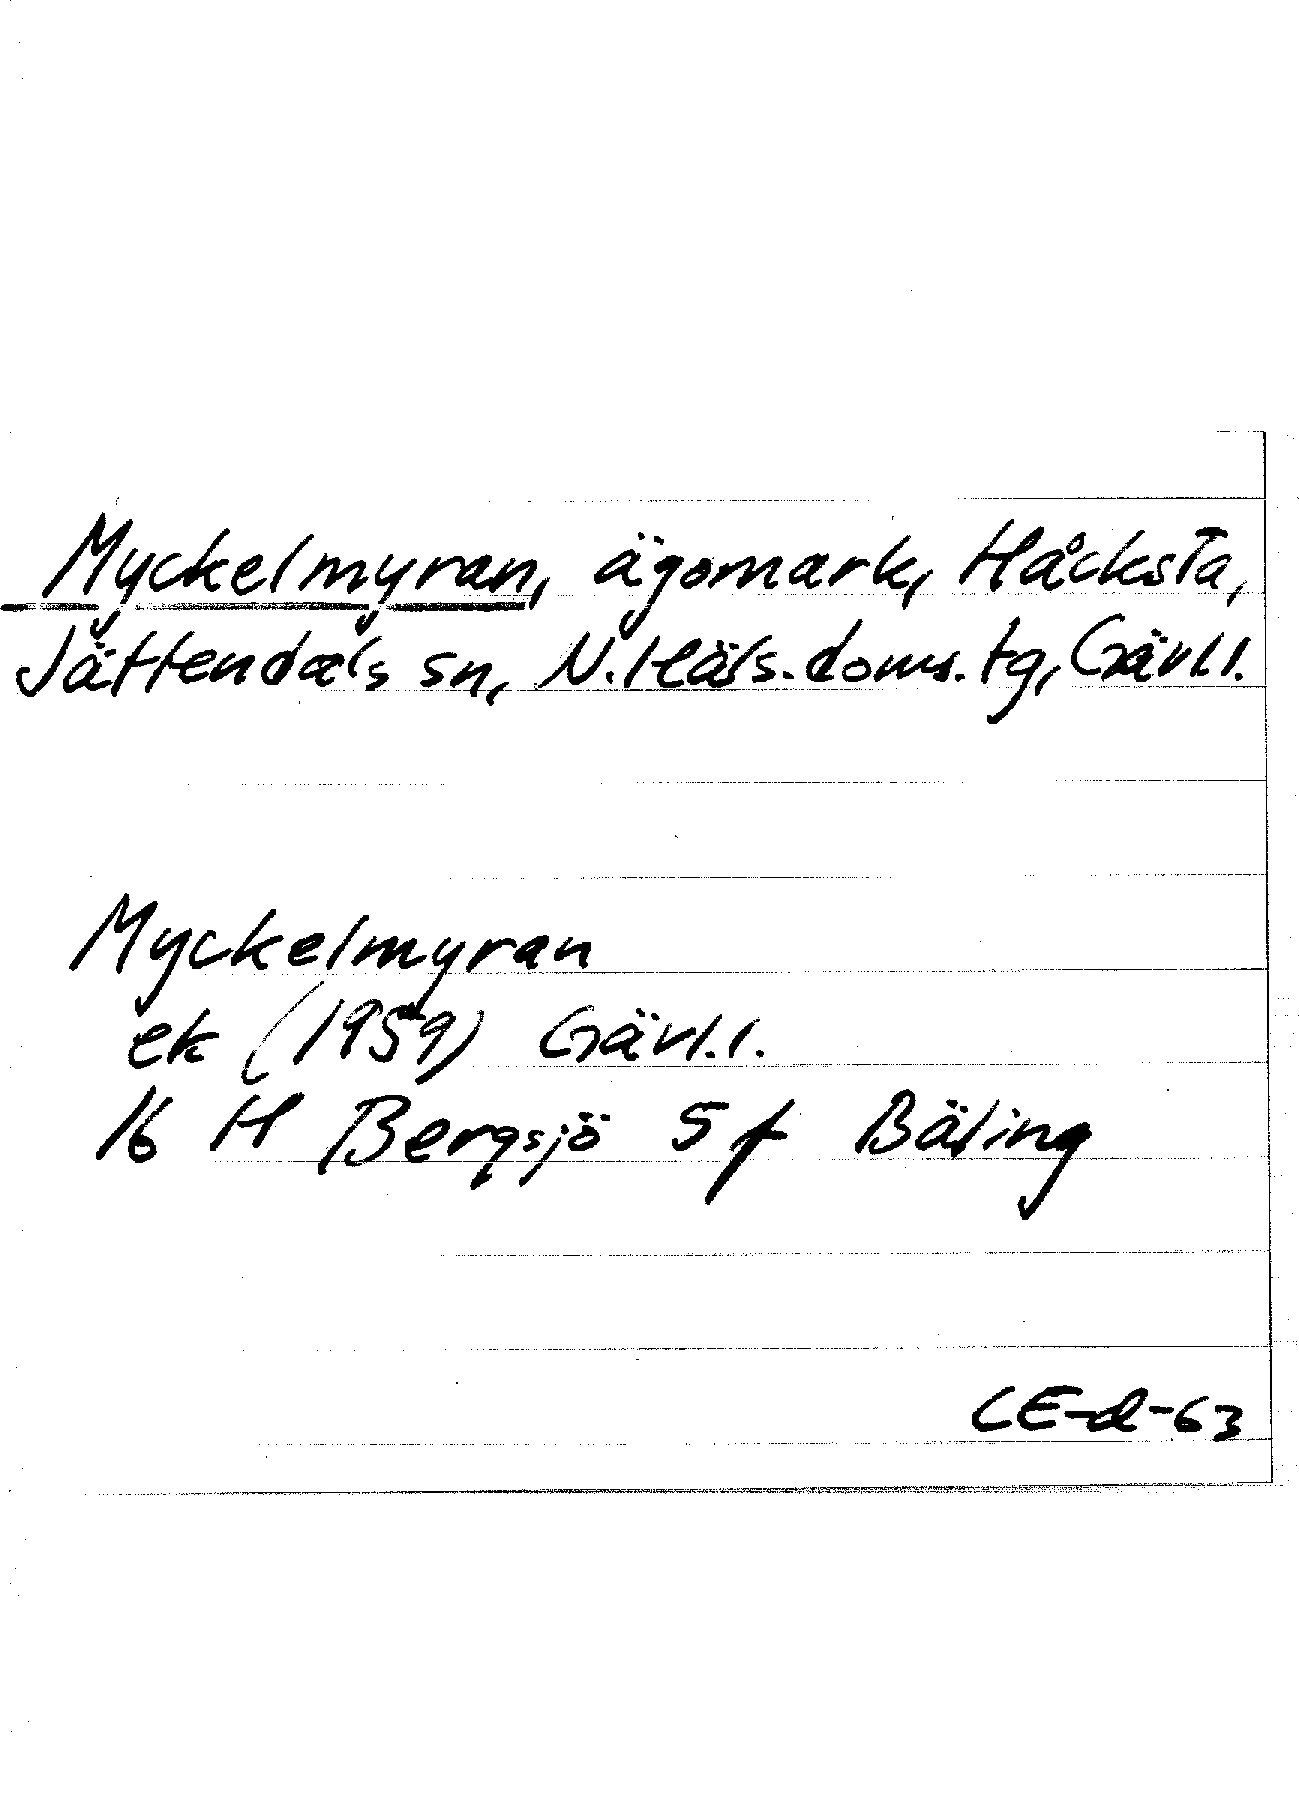 Myckelmyran, ägomark, Håcksta,
Jättendals sn, N. Häls. doms. tg, Gävl.l.
Myckelmyran
ek (1959) Gävl.l.
16 H Bergsjö 5f Bäling
CE-d-63